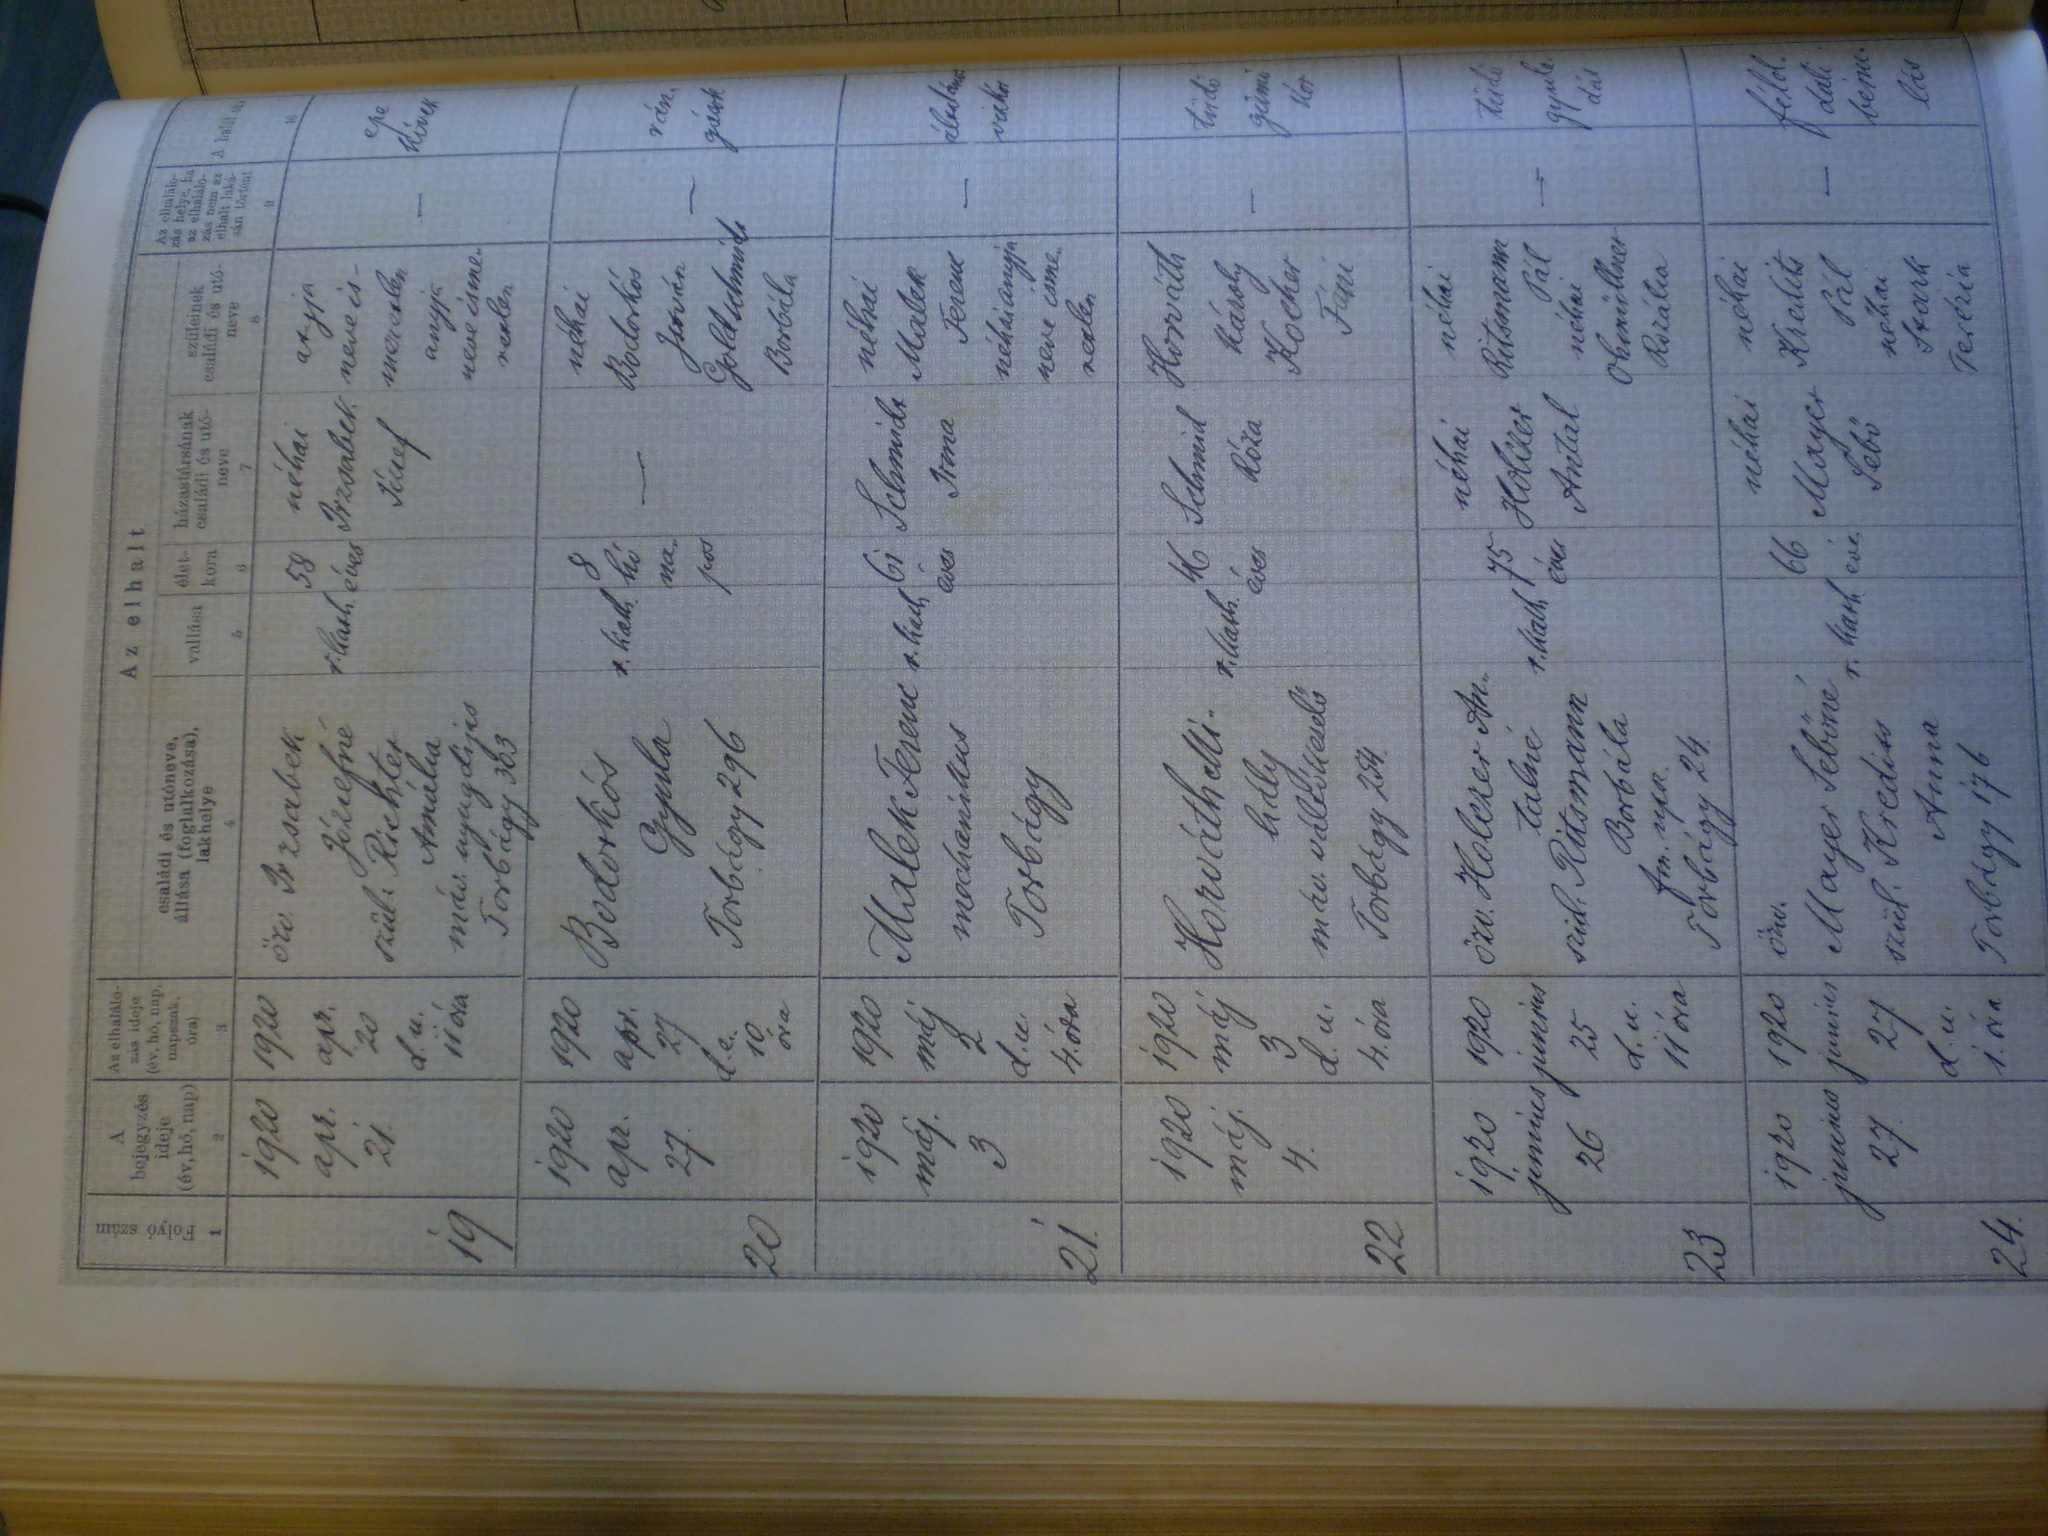 Az elhalt
Folyó szám
A
bejegyzés
ideje
(év, hó, nap)
Az elhalálo-
zás ideje
(év, hó, nap,
napszak,
óra)
családi és utóneve,
állása (foglalkozása),
lakhelye
vallása
élet-
kora
házastársának
családi és utó-
neve
szüleinek
családi és utó-
neve
Az elhalálo-
zás helye, ha
az elhalálo-
zás nem az
elhalt laká-
sán történt
A halál
1
2
3
4
5
6
7
8
9
10
19
1920
apr.
21.
1920
apr.
20
d. u.
11 óra
özv. Irzsabek
Józsefné
szül. Richter
Amália
máv. nyugdíjas
Torbágy 303
r. kath.
58
éves
néhai
Irzsabek
József
atyja
neve is-
meretlen
anyja
neve isme-
retlen
—
epe
kövek
20
1920
apr.
27.
1920
apr.
27
d. e.
10
óra
Bodorkós
Gyula
Torbágy 296
r. kath.
8
hó
na-
pos
—
néhai
Bodorkós
István
Goldschmidt
Borbála
—
rán-
gások
21.
1920
máj.
3
1920
máj
2
d. u.
4. óra
Malek Ferenc
mechanikus
Torbágy
r. kath.
61
éves
Schmidt
Irma
néhai
Malek
Ferenc
néhai anyja
neve isme-
retlen
—
22
1920
máj.
4.
1920
máj
3
d. u.
4. óra
Horváth Mi-
hály
máv. váltókezelő
Torbágy 254.
r. kath.
46
éves
Schmid
Róza
Horváth
Károly
Kocher
Fáni
—
tüdő
gümő
kór
23
1920
június
26
1920
június
25
d. u.
11 óra
özv. Holczer An-
talné
szül. Ritsmann
Borbála
Torbágy 24.
r. kath.
75
éves
néhai
Holczer
Antal
néhai
Ritsmann
Pál
néhai
Ohmüllner
Rozália
—
tüdő
gyula-
dás
24.
1920
június
27.
1920
június
27
d. u.
1. óra
özv.
Mayer Sebőné
szül. Kredits
Anna
Torbágy 176
r. kath.
66
éve.
néhai
Mayer
Sebő
néhai
Kredits
Pál
néhai
Stark
Terézia
—
féLol.
dali
bénu-
lás